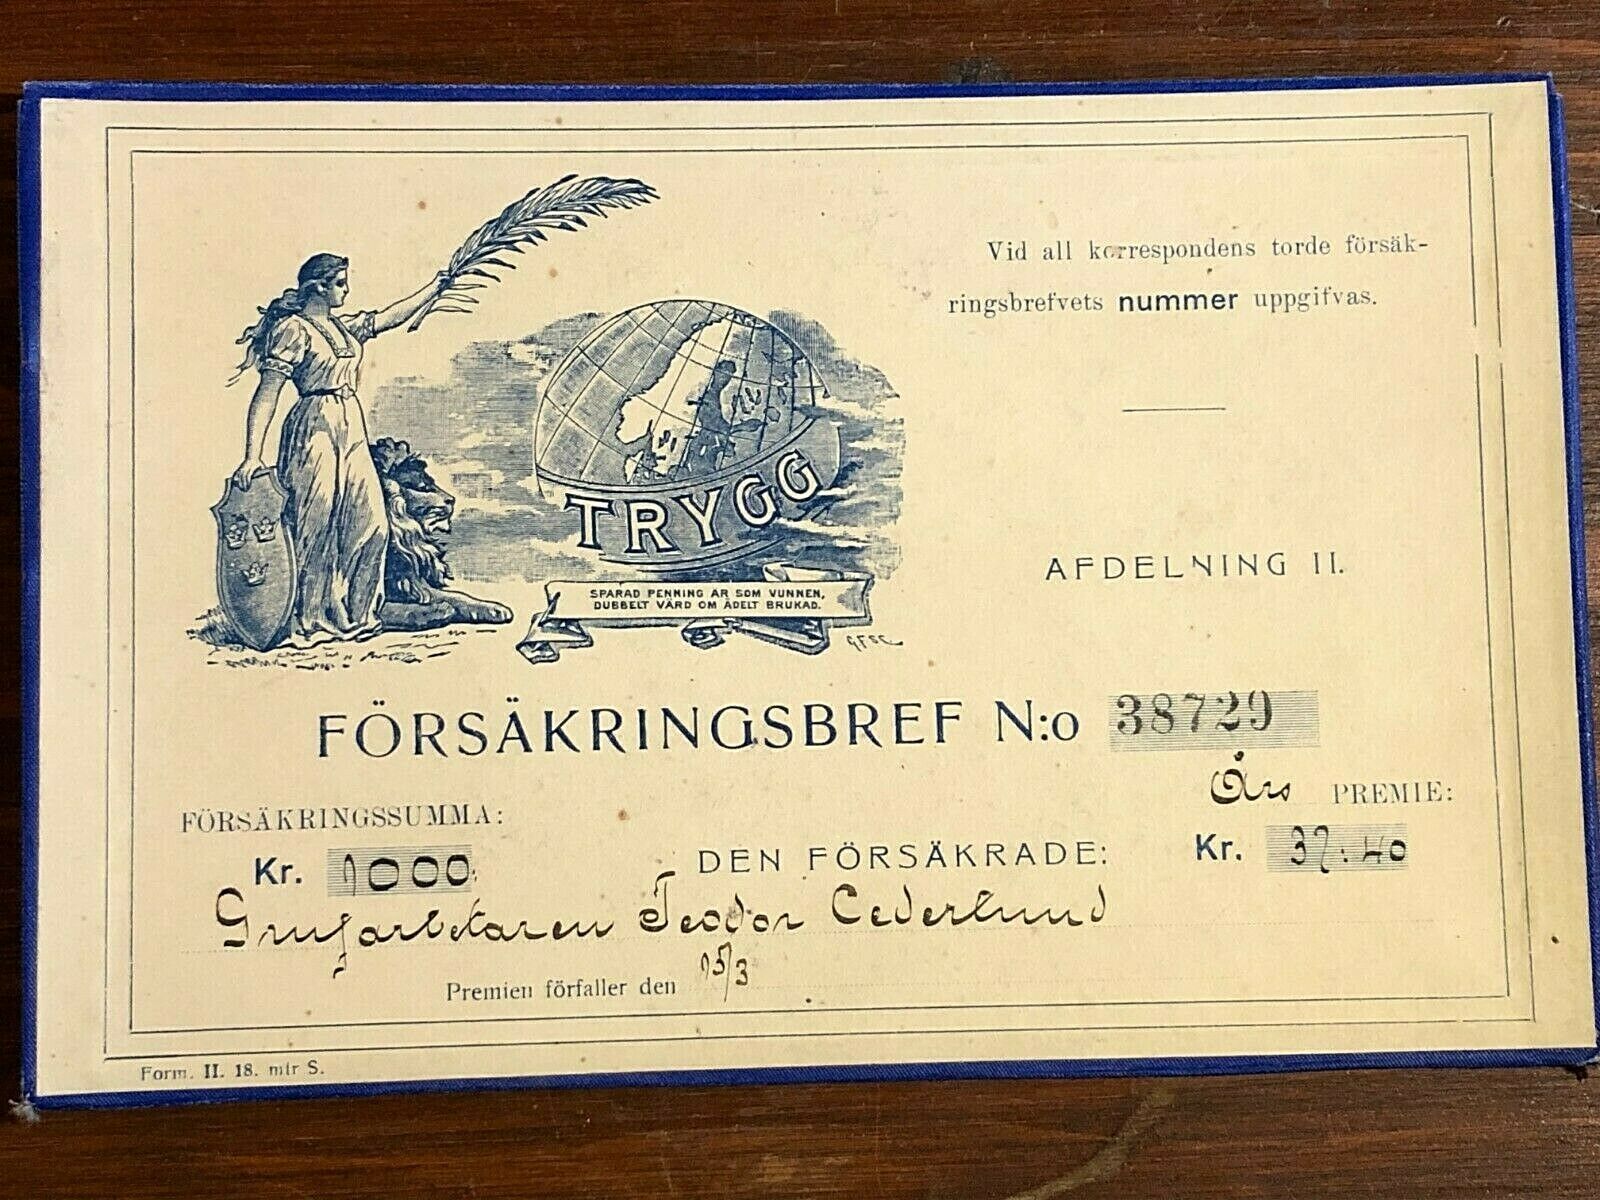 Vid all korrespondens torde försäk-
ringsbrefvets nummer uppgifvas.
TRYGG
SPARAD PENNING ÄR SOM VUNNEN,
DUBBELT VÄRD OM ÄDELT BRUKAD.
G.F.S.C.
AFDELNING II.
FÖRSÄKRINGSBREF N:o 38729
FÖRSÄKRINGSSUMMA:
Års PREMIE:
Kr. 1000.
DEN FÖRSÄKRADE:
Kr. 37:40
Grufarbetaren Teodor Cederlund
Premien förfaller den 15/3
Form. II. 18. mtr S.